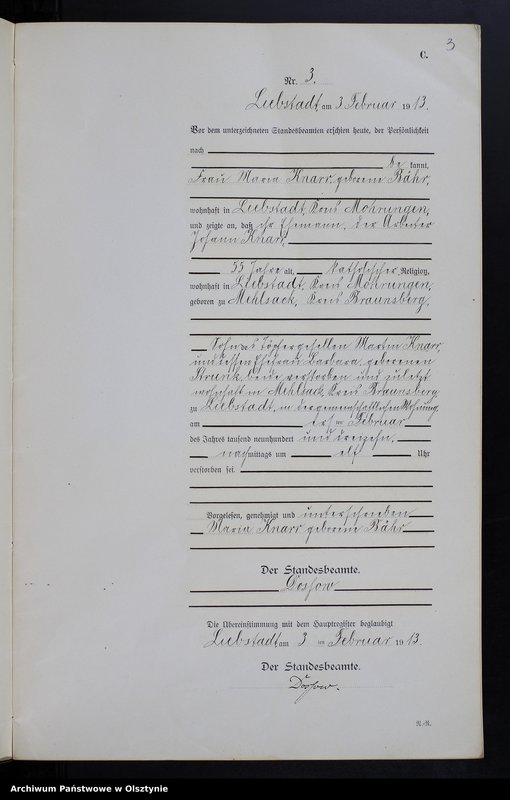 3
C.
Nr. 3.
Liebstadt, am 3 Februar 1913.
Vor dem unterzeichneten Standesbeamten erschien heute, der Persönlichkeit
nach
be kannt,
Frau Maria Knarr, geborene Bähr,
wohnhaft in Liebstadt, Kreis Mohrungen,
und zeigte an, daß ihr Ehemann, der Arbeiter
Johann Knarr,
55 Jahre alt, katholischer Religion,
wohnhaft in Liebstadt, Kreis Mohrungen,
geboren zu Mehlsack, Kreis Braunsberg,
Sohn des Töpfergesellen Martin Knarr
und dessen Ehefrau Barbara, geborenen
beide verstorben und zuletzt
wohnhaft in Mehlsack, Kreis Braunsberg
zu Liebstadt, in der gemeinschaftlichen Wohnung,
am ersten Februar
des Jahres tausend neunhundert und dreizehn,
nachmittags um elf Uhr
verstorben sei.
Vorgelesen, genehmigt und unterschrieben
Maria Knarr geborene Bähr
Der Standesbeamte.
Die Übereinstimmung mit dem Hauptregister beglaubigt
Liebstadt, am 3 ten Februar 1913.
Der Standesbeamte.
Archiwum Państwowe w Olsztynie